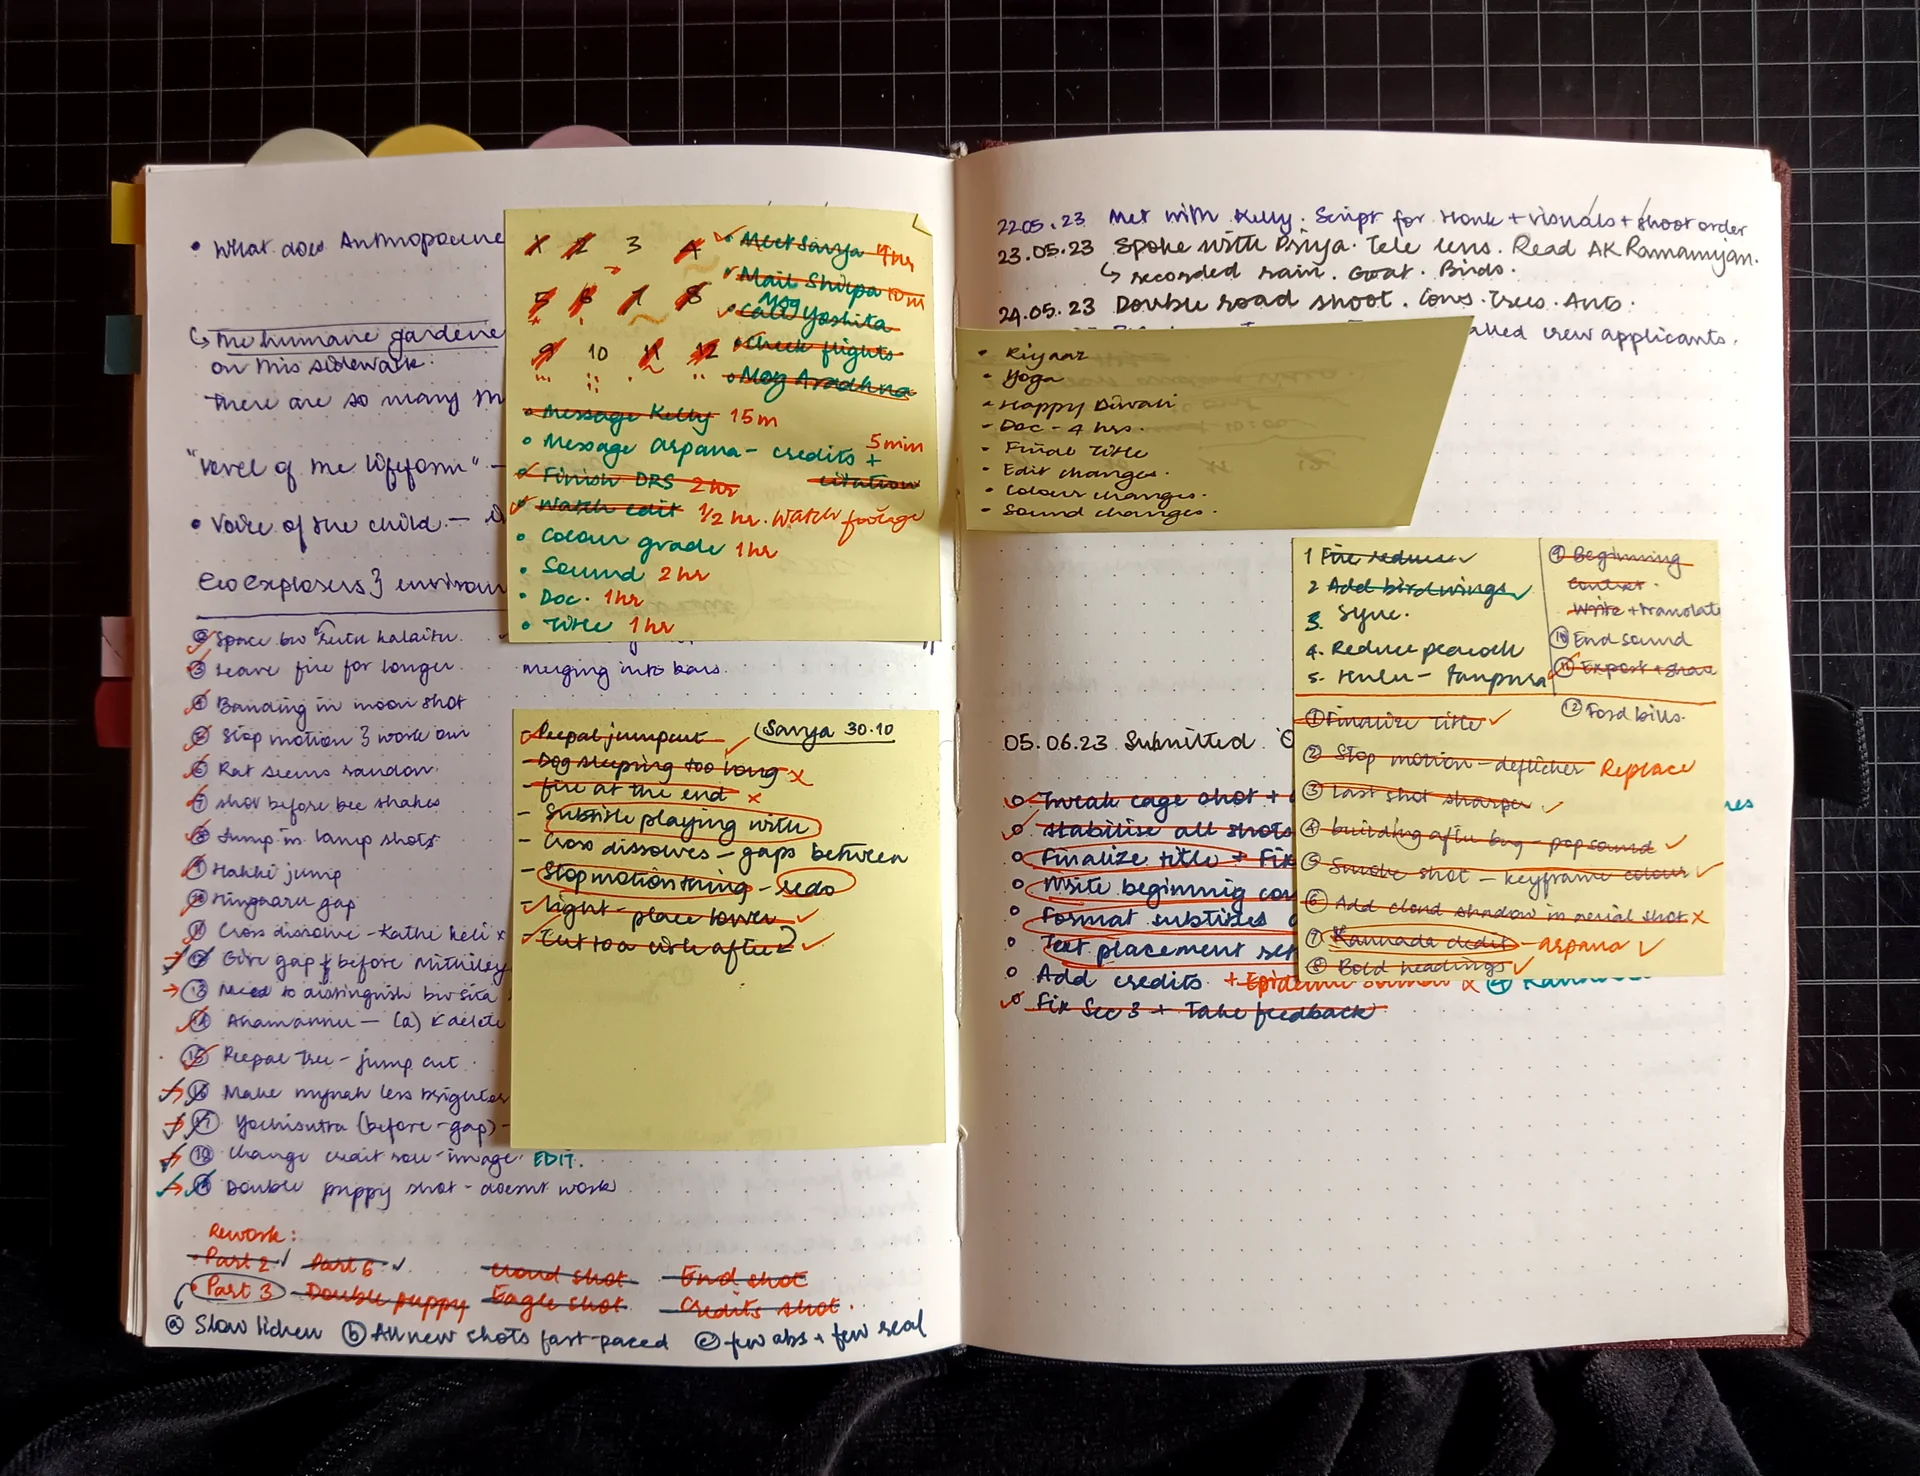 • What does Anthropocene
↳ The humane gardene
on this sidewalk.
there are so many
"level of the lifeform" —
• Voice of the child —
Eco explorers } environ
Space btw Ruthu halaitu.
③ Leave fire for longer
④ Banding in moon shot
⑤ Stop motion } work on
⑥ Rat seems random.
⑦ Shot before bee shakes
⑧ Jump in lamp shots.
⑨ Hakki jump
⑩ Hingaaru gap
⑪ Cross dissolve - Kathe keli x
⑫ Give gap before
⑬ Need to distinguish btw sita
⑭ — (a)
⑮ Peepal Tree - jump cut
⑯ Make mynah less brighter
⑰ (before - gap) -
⑱ Change credit roll - image. EDIT.
⑲ Double puppy shot - doesn't work
merging into bars.
Rework:
• Part 2 ✓ Part 6 ✓ Cloud shot End shot
• Part 3 Double puppy Eagle shot Credits shot.
ⓐ Slow lichen ⓑ All new shots fast-paced ⓒ few abs + few real
1 2 3 4
5 6 7 8
9 10 11 12
✓ Meet Sanya 4hr
Mail Shilpa 10m
Msg
Call Yoshita
Check flights
• Msg Aradhna
• Message Kelly 15m
• Message Arpana - credits + 5 min
citation
• Finish DRS 2 hr
• Watch edit 1/2 hr. Watch footage
• Colour grade 1 hr
• Sound 2 hr
• Doc. 1 hr
• Title 1 hr
Sanya 30.10
- Peepal jumpcut ✓
- Dog sleeping too long x
- fire at the end x
- Subtitle playing with
- Cross dissolves - gaps between
- Stop motion thing - redo
- Light - place lower ✓
- Cut to a wide after 2 ✓
22.05.23 Met with Kelly. Script for Honk + visuals + shoot order
23.05.23 Spoke with Priya. Tele lens. Read AK Ramanujan.
↳ recorded rain. Goat. Birds.
24.05.23 Double road shoot. Cows. Trees. Auto.
alled crew applicants.
• Riyaaz
• Yoga
• Happy Diwali
- Doc - 4 hrs.
• Final Title
• Edit changes.
• Colour changes.
• Sound changes.
1 Fire reduce ✓
2 Add birdwings ✓
3. Sync.
4. Reduce peacock
5. Hulu - Tanpura
⑨ Beginning
context.
Write + translate
⑩ End sound
⑪ Export + share
⑫ Food bills.
① Finalize title ✓
② Stop motion - deflicker Replace
③ Last shot sharper ✓
④ building after bug - pop sound ✓
⑤ Smoke shot - keyframe colour ✓
⑥ Add cloud shadow in aerial shot. x
⑦ Kannada credit - Arpana ✓
⑧ Bold headings ✓
05.06.23 Submitted
Tweak cage shot +
Stabilise all shots
Finalize title + Fix
Write beginning con
Format subtitles
Text placement
Add credits + Epidemic x
Fix Sec 3 + Take feedback